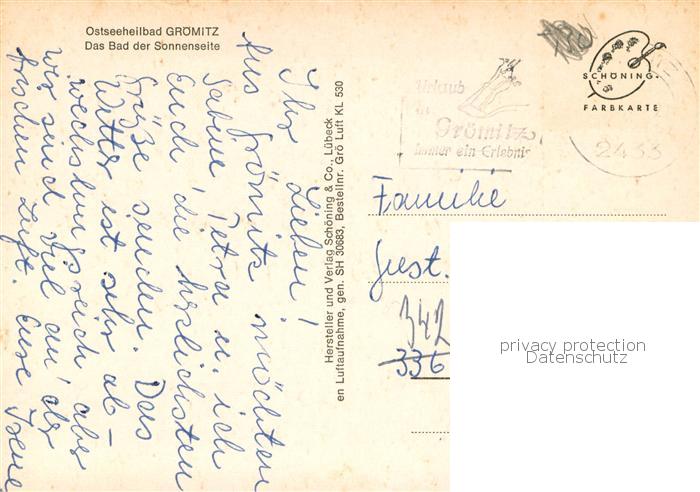 Ostseeheilbad GRÖMITZ
Das Bad der Sonnenseite
Ihr Lieben!
Aus Grömitz möchten
Sabine, Petra u. ich
Euch die herzlichsten
Grüße senden. Das
Wetter ist sehr ab-
wechslungsreich aber
wir sind viel an der
frischen Luft. Eure Irene
Hersteller und Verlag Schöning & Co., Lübeck
en Luftaufnahme, gen. SH 30683, Bestellnr. Grö Luft KL 530
Urlaub
in
Grömitz
immer ein Erlebnis
SCHÖNING
FARBKARTE
2433
Familie
Gust.
342
336
privacy protection
Datenschutz